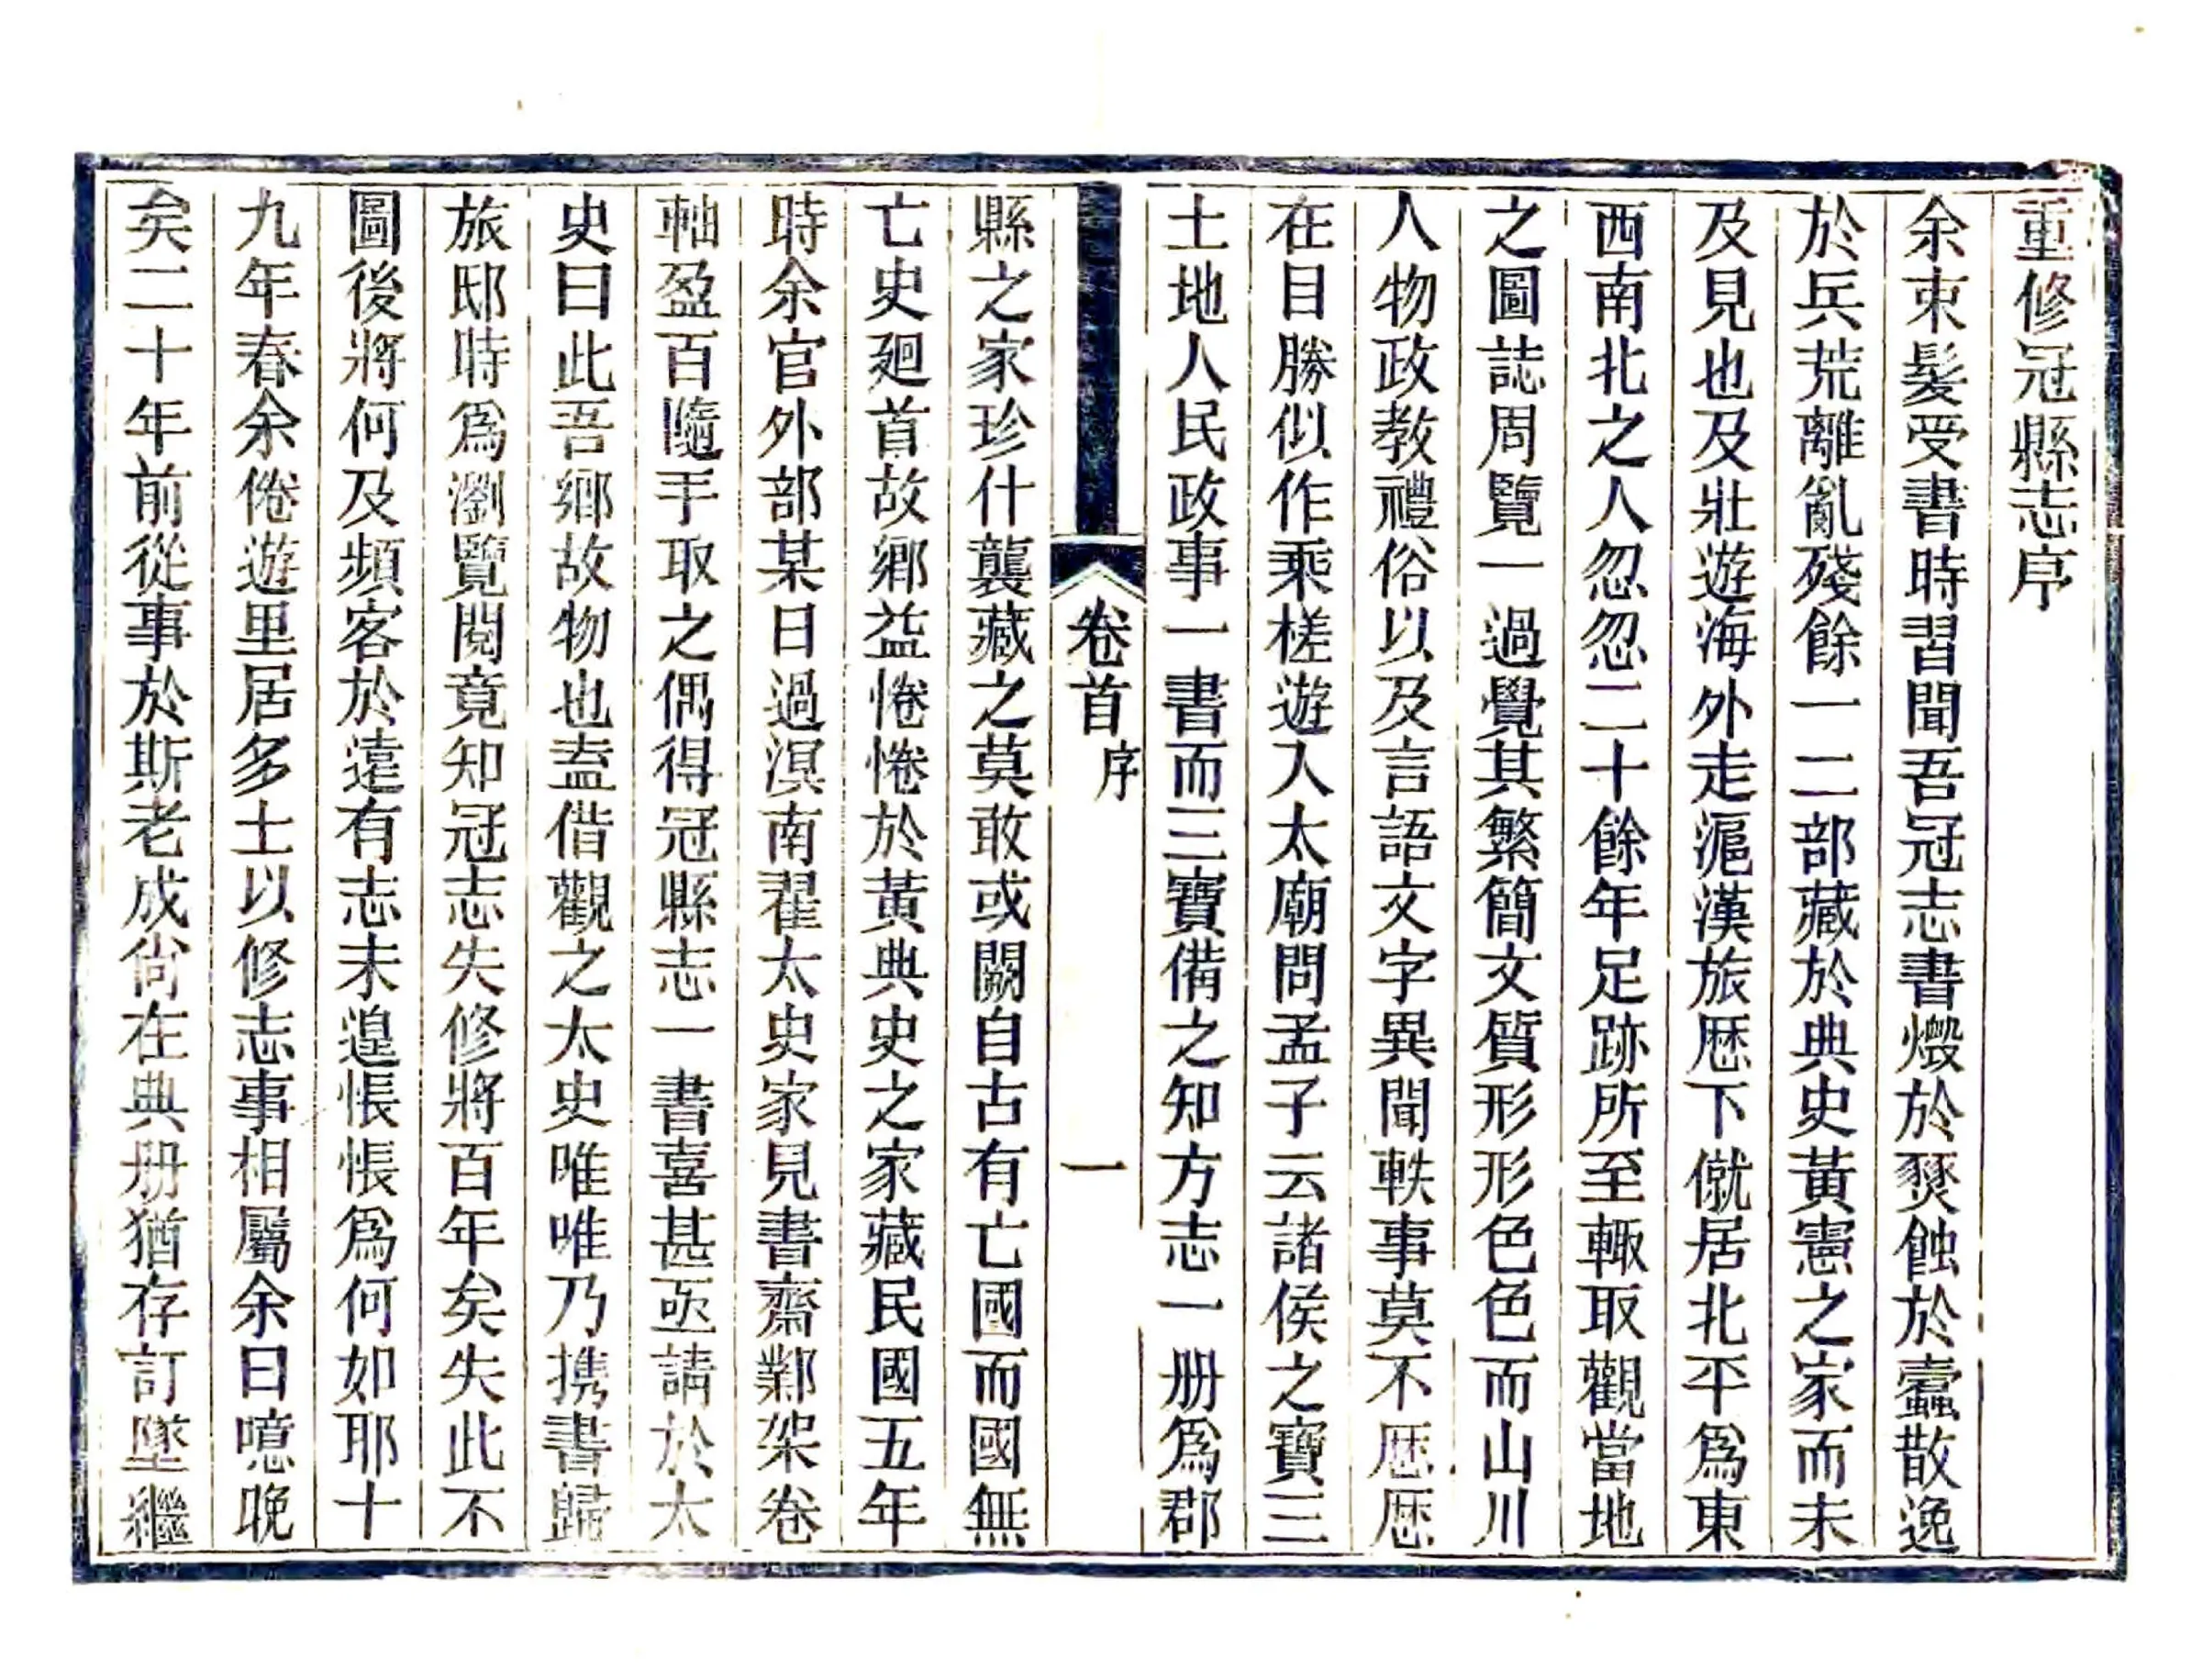 重修冠縣志序
余束髮受書時習聞吾冠志書燬於燹蝕於蠹散逸
於兵荒離亂殘餘一二部藏於典史黃憲之家而未
及見也及壯遊海外走滬漢旅歷下僦居北平爲東
西南北之人忽忽二十餘年足跡所至輙取觀當地
之圖誌周覽一過覺其繁簡文質形形色色而山川
人物政教禮俗以及言語文字異聞軼事莫不歷歷
在目勝似作乘槎遊入太廟問孟子云諸侯之寶三
土地人民政事一書而三寶備之知方志一册爲郡
卷首 序 一
縣之家珍什襲藏之莫敢或闕自古有亡國而國無
亡史廻首故鄉益惓惓於黃典史之家藏民國五年
時余官外部某日過淏南翟太史家見書齋鄴架卷
軸盈百隨手取之偶得冠縣志一書喜甚亟請於太
史曰此吾鄉故物也盍借觀之太史唯唯乃携書歸
旅邸時爲瀏覽閱竟知冠志失修將百年矣失此不
圖後將何及頻客於遠有志未遑悵悵爲何如耶十
九年春余倦遊里居多士以修志事相屬余曰噫晚
矣二十年前從事於斯老成尙在典册猶存訂墜繼